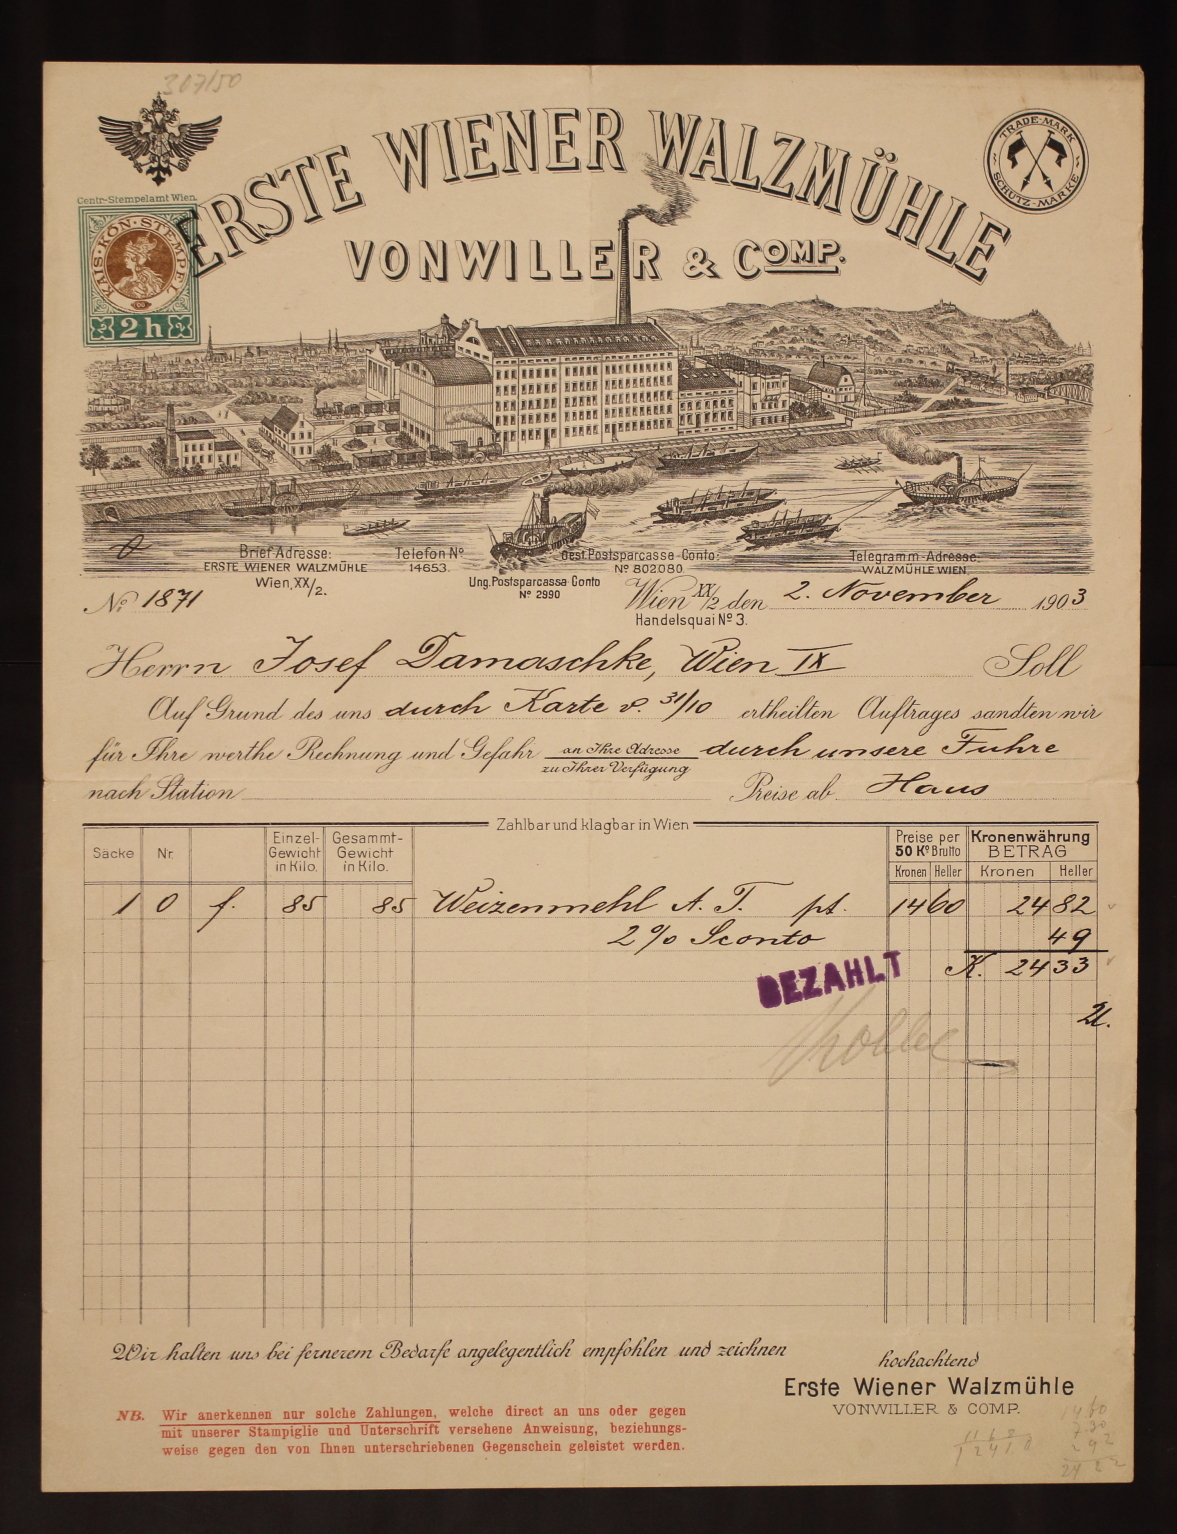 307/50
ERSTE WIENER WALZMÜHLE
VONWILLER & COMP.
TRADE-MARK
SCHUTZ-MARKE
Centr-Stempelamt Wien.
KAIS·KÖN·STEMPEL
2h
Brief-Adresse:
ERSTE WIENER WALZMÜHLE
Wien, XX/2.
Telefon No
14653.
Ung. Postsparcassa-Conto
No 2990
Oest. Postsparcassa-Conto:
No 802080
Telegramm-Adresse:
WALZMÜHLE WIEN
No 1871
Wien XX/2 den 2. November 1903
Handelsquai No 3.
Herrn Josef Damaschke, Wien IX Soll
Auf Grund des uns durch Karte v. 31/10 ertheilten Auftrages sandten wir
für Ihre werthe Rechnung und Gefahr an Ihre Adresse durch unsere Fuhre
zu Ihrer Verfügung
nach Station Preise ab Haus
Zahlbar und klagbar in Wien
Säcke Nr. Einzel-Gewicht in Kilo. Gesammt-Gewicht in Kilo. Preise per 50 Ko Brutto Kronenwährung BETRAG
Kronen Heller Kronen Heller
1 0 f. 85 85 Weizenmehl A. T. pt. 14 60 24 82
2% Sconto 49
K. 24 33
BEZAHLT
Wir halten uns bei fernerem Bedarfe angelegentlich empfohlen und zeichnen
hochachtend
Erste Wiener Walzmühle
VONWILLER & COMP.
NB. Wir anerkennen nur solche Zahlungen, welche direct an uns oder gegen
mit unserer Stampiglie und Unterschrift versehene Anweisung, beziehungs-
weise gegen den von Ihnen unterschriebenen Gegenschein geleistet werden.
14 60
7.30
2 92